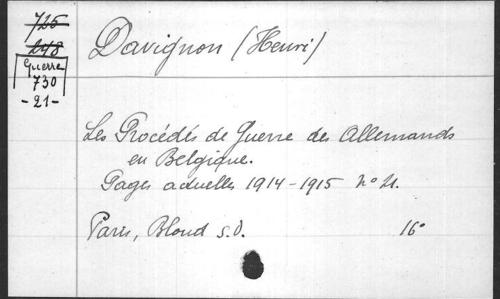 725
248
Guerre
730
-21-
Davignon (Henri)
Les Procédés de Guerre des Allemands
en Belgique.
Pages actuelles 1914-1915 n° 21.
Paris, Bloud s.d. 16°